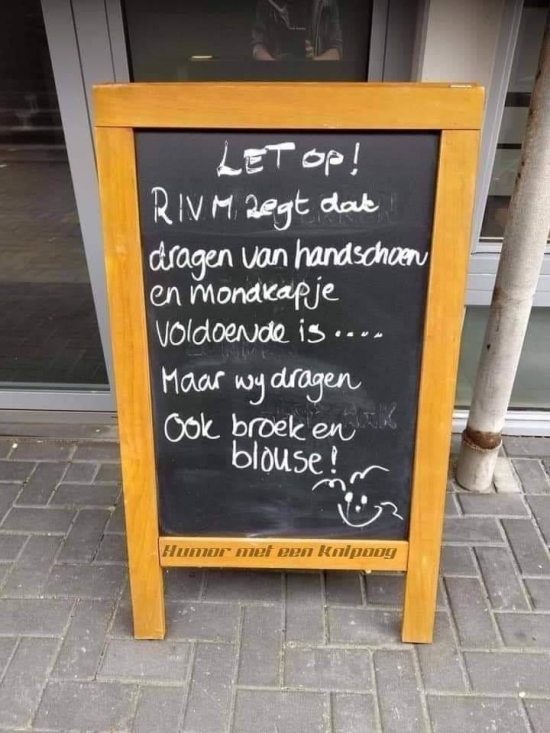 LET OP!
RIVM zegt dat
dragen van handschoen
en mondkapje
voldoende is ....
Maar wy dragen
Ook broek en
blouse!
Humor met een Knipoog